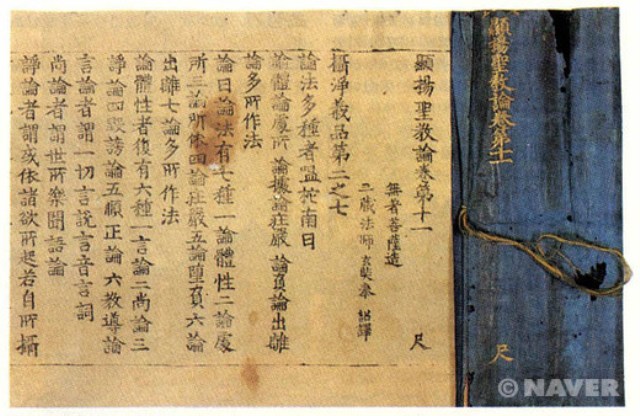 顯揚聖教論卷第十一
尺
顯揚聖教論卷第十一 尺
無著菩薩造
三藏法師玄奘奉 詔譯
攝淨義品第二之七
論法多種者嗢柁南曰
論體論處所 論據論莊嚴 論負論出離
論多所作法
論曰論法有七種一論體性二論處
所三論所依四論莊嚴五論墮負六論
出離七論多所作法
論體性者復有六種一言論二尚論三
諍論四毀謗論五順正論六教導論
言論者謂一切言說言音言詞
尚論者謂世所樂聞語論
諍論者謂或依諸欲所起若自所攝
© NAVER